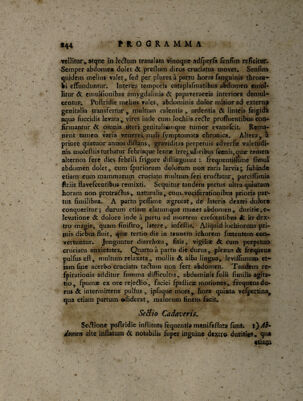 244 PROGRAMMA
vellitur, atque in lectum translata vinoque adspersa sensim reficitur.
Semper abdomen dolet & pressum dirus cruciatus movet. Sensim
quidem melius valet, sed per plures a partu horas sanguinis
effunduntur. Interea temporis cataplasmatibus abdomen emol-
litur & emulsionibus amygdalinis & papaveraceis interiora demul-
centur. Postridie melius valet, abdominis dolor mitior ad externa
genitalia transfertur, multum calentia, ardentia & linteis
aqua succidis levata, vires inde cum lochiis recte profluentibus con-
firmantur & omnis uteri genitaliumque tumor evanescit. Rema-
nent tamen varia veteres,
priore quatuor annos distans, graviditas perpetuis adversae valetudi-
nis molestiis turbatur febrisque lentae
alternos fere dies febrili frigore distinguunt: frequentissime simul
abdomen dolet, cum spurioram dolorum non raris larvis; subinde
etiam cum mammarum cruciatu multum seri effunditur, parcissentia
striis flavescentibus remixti. Sequitur tandem partus ultra quartam
horam non protractus, naturalis, onus, vociferationibus prioris par-
tus similibus. A partu pessime aegreat, de lateris dextri dolore
conqueritur; durum etiam alarumque manet abdomen, durities, e-
levatione & dolore inde a partu ad mortem crescentibus & in dex-
tro magis, quam sinistro, latere, infestis. Aliquid lochiorum pri-
mis diebus fluit, quae tertio die in tenuem ichorem foetentem con-
vertuntur. Jungitur diarrhoea, sitis, vigiliae & cum perpetuo
cruciatu anxietates. Quarto à partu die durus, plenus & frequens
pulsus est, multum relaxata, mollis & alba lingua, levissimum et-
iam sine acerbo cruciatu tactum non fert abdomen. Tandem re-
spirationis additur summa difficultas, abdominis follis similis agita-
tio, spumae ex ore rejectio, faciei spasticae motiones, frequens du-
rus & intermittens pulsus, ipsaque mors, hora quinta vespertina,
qua etiam partum ediderat, malorum finem facit.
Sectio Cadaveris.
Sectione postridie instituta sequentia manifestata sunt. 1) Ab-
domen alte inflatum & notabilis super inguine dextro durities, qua
etiam